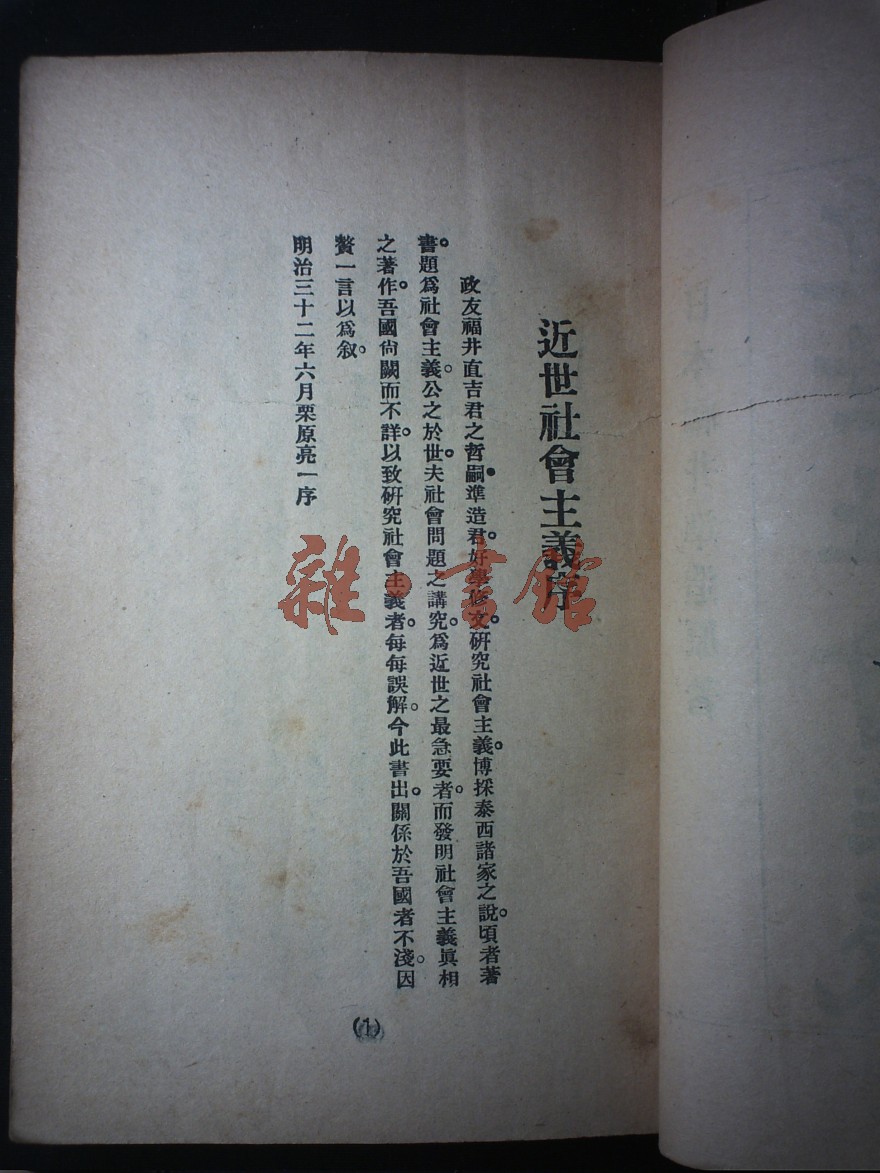 近世社會主義序
政友福井直吉君之哲嗣準造君。好學修文。研究社會主義。博採泰西諸家之說。頃者著
書。題爲社會主義。公之於世。夫社會問題之講究。爲近世之最急要者。而發明社會主義眞相
之著作。吾國尙闕而不詳。以致硏究社會主義者。每每誤解。今此書出。關係於吾國者不淺。因
贅一言以爲叙。
明治三十二年六月栗原亮一序
(1)
雜·書館